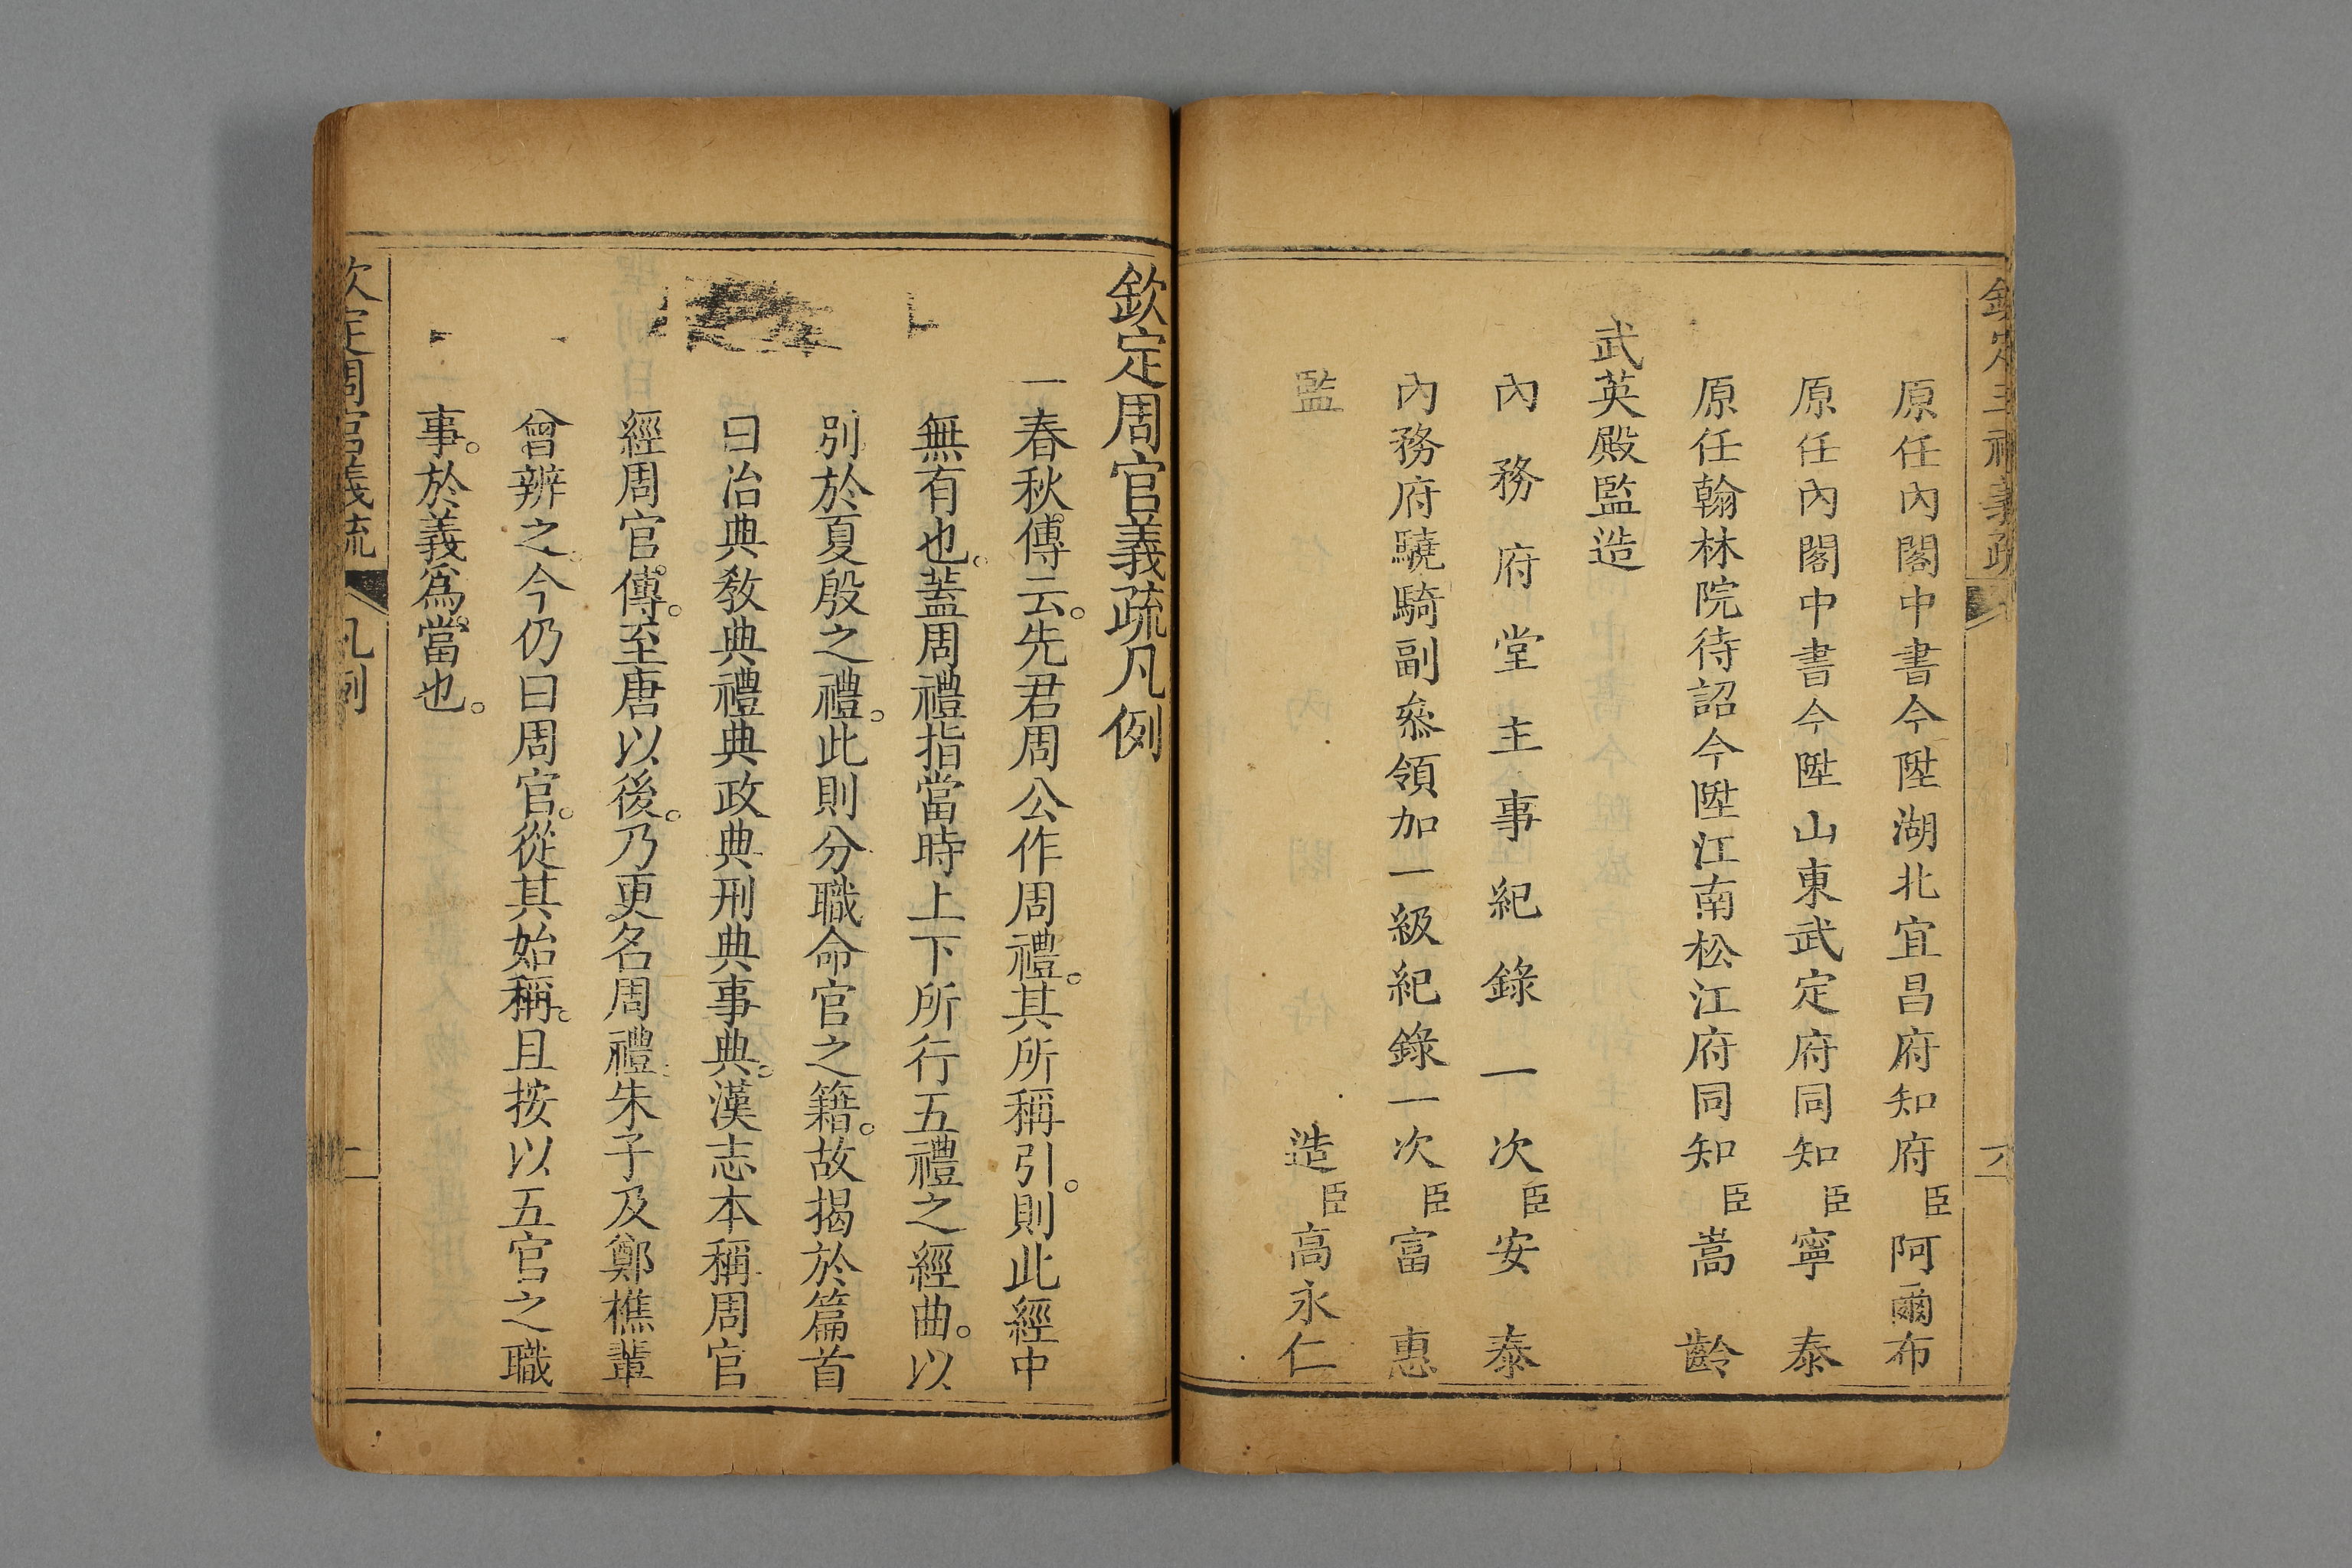 欽定三禮義疏
原任內閣中書今陞湖北宜昌府知府臣阿爾布
原任內閣中書今陞山東武定府同知臣寧泰
原任翰林院待詔今陞江南松江府同知臣嵩齡
武英殿監造
內務府堂主事紀錄一次臣安泰
內務府驍騎副叅領加一級紀錄一次臣富惠
監造臣高永仁
欽定周官義疏凡例
一春秋傳云。先君周公作周禮。其所稱引。則此經中
無有也。蓋周禮指當時上下所行五禮之經曲。以
別於夏殷之禮。此則分職命官之籍。故揭於篇首
曰治典敎典禮典政典刑典事典。漢志本稱周官
經周官傳。至唐以後。乃更名周禮。朱子及鄭樵輩
曾辨之。今仍曰周官。從其始稱。且按以五官之職
事。於義爲當也。
欽定周官義疏 凡例 一